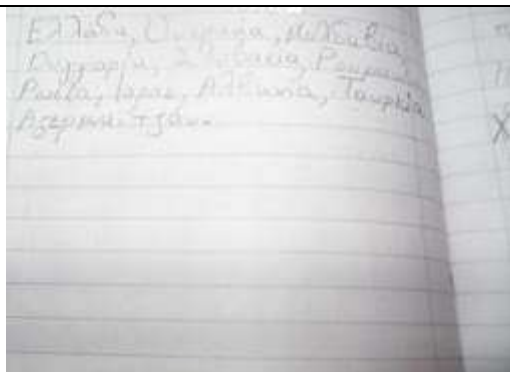 Ελλάδα, Ουκρανία, Μολδαβία,
Ουγγαρία, Σλοβακία, Ρουμανία
Ρωσία, Ιράκ, Αλβανία, Τουρκία
Αζερμπαιτζάν.
Χ